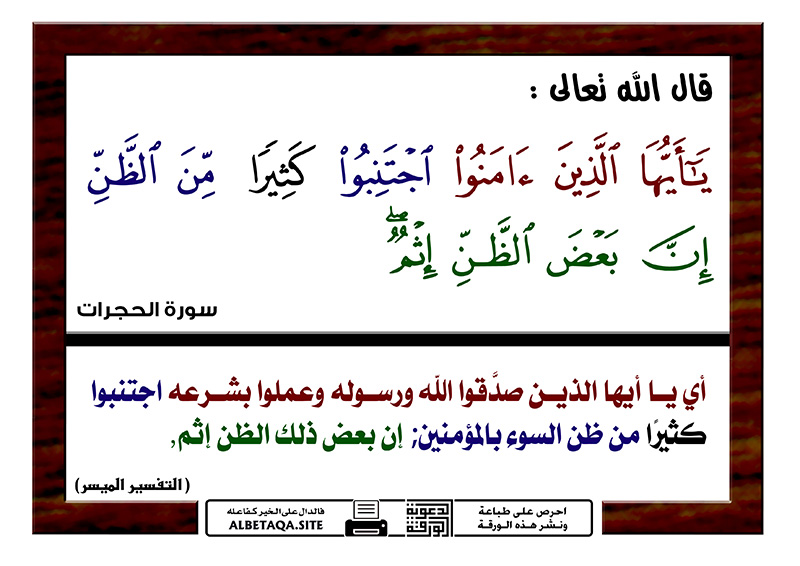 قال الله تعالى :
يَـٰٓأَيُّهَا ٱلَّذِينَ ءَامَنُوا۟ ٱجْتَنِبُوا۟ كَثِيرًا مِّنَ ٱلظَّنِّ
إِنَّ بَعْضَ ٱلظَّـنِّ إِثْمٌ ۖ
سورة الحجرات
أي يـا أيها الذيـن صدَّقوا الله ورسـوله وعملوا بشـرعه اجتنبوا
كثيرًا من ظن السوء بالمؤمنين; إن بعض ذلك الظن إثم,
(التفسير الميسر)
احرص على طباعة
ونشر هذه الورقة
الدعوية
الورقة
فالدال على الخير كفاعله
ALBETAQA.SITE